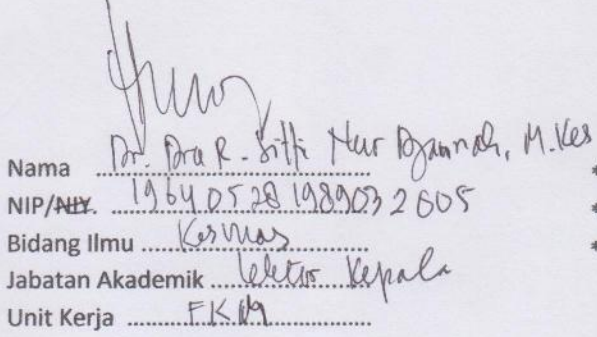 Nama Dr. Dra R. Sitti Nur Djannah, M.Kes
NIP/NIY. 19640528 198903 2005
Bidang Ilmu Kesmas
Jabatan Akademik Lektor Kepala
Unit Kerja FKM